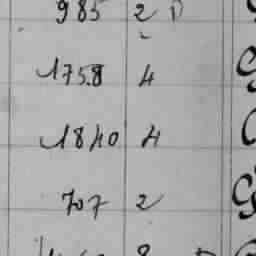 985 2 D
1758 4
1840 4
707 2